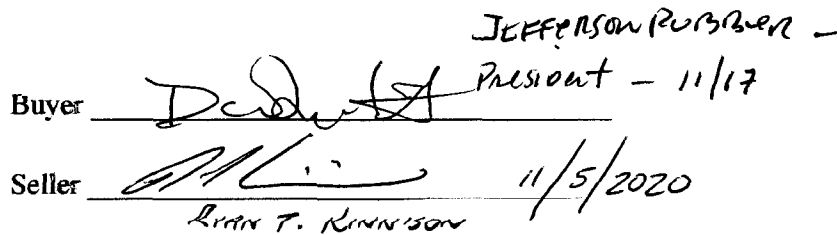 JEFFERSON RUBBER -
President - 11/17
Buyer
Seller 11/5/2020
RYAN T. KINNISON